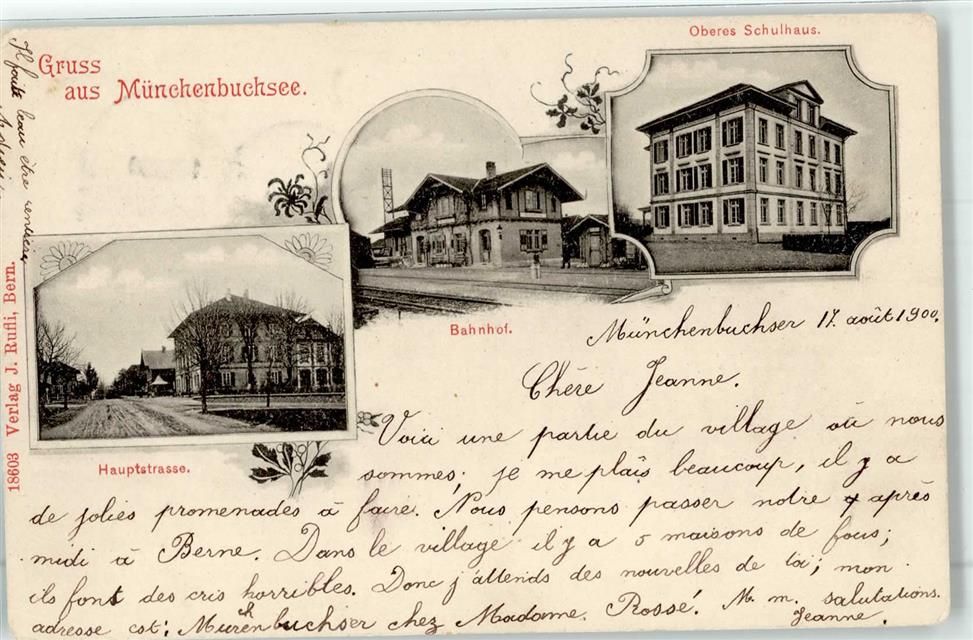 Oberes Schulhaus.
Gruss
aus Münchenbuchsee.
Bahnhof.
Hauptstrasse.
18603 Verlag J. Rufli, Bern.
Il faut beau être
Münchenbuchser 17. août 1900.
Chère Jeanne.
Voici une partie du village où nous
sommes; je me plais beaucoup, il y a
de jolies promenades à faire. Nous pensons passer notre après
midi à Berne. Dans le village il y a 5 maisons de fous;
ils font des cris horribles. Donc j'attends des nouvelles de toi; mon
adresse est: Münchenbuchser chez Madame. Rossé. M. m. salutations.
Jeanne.